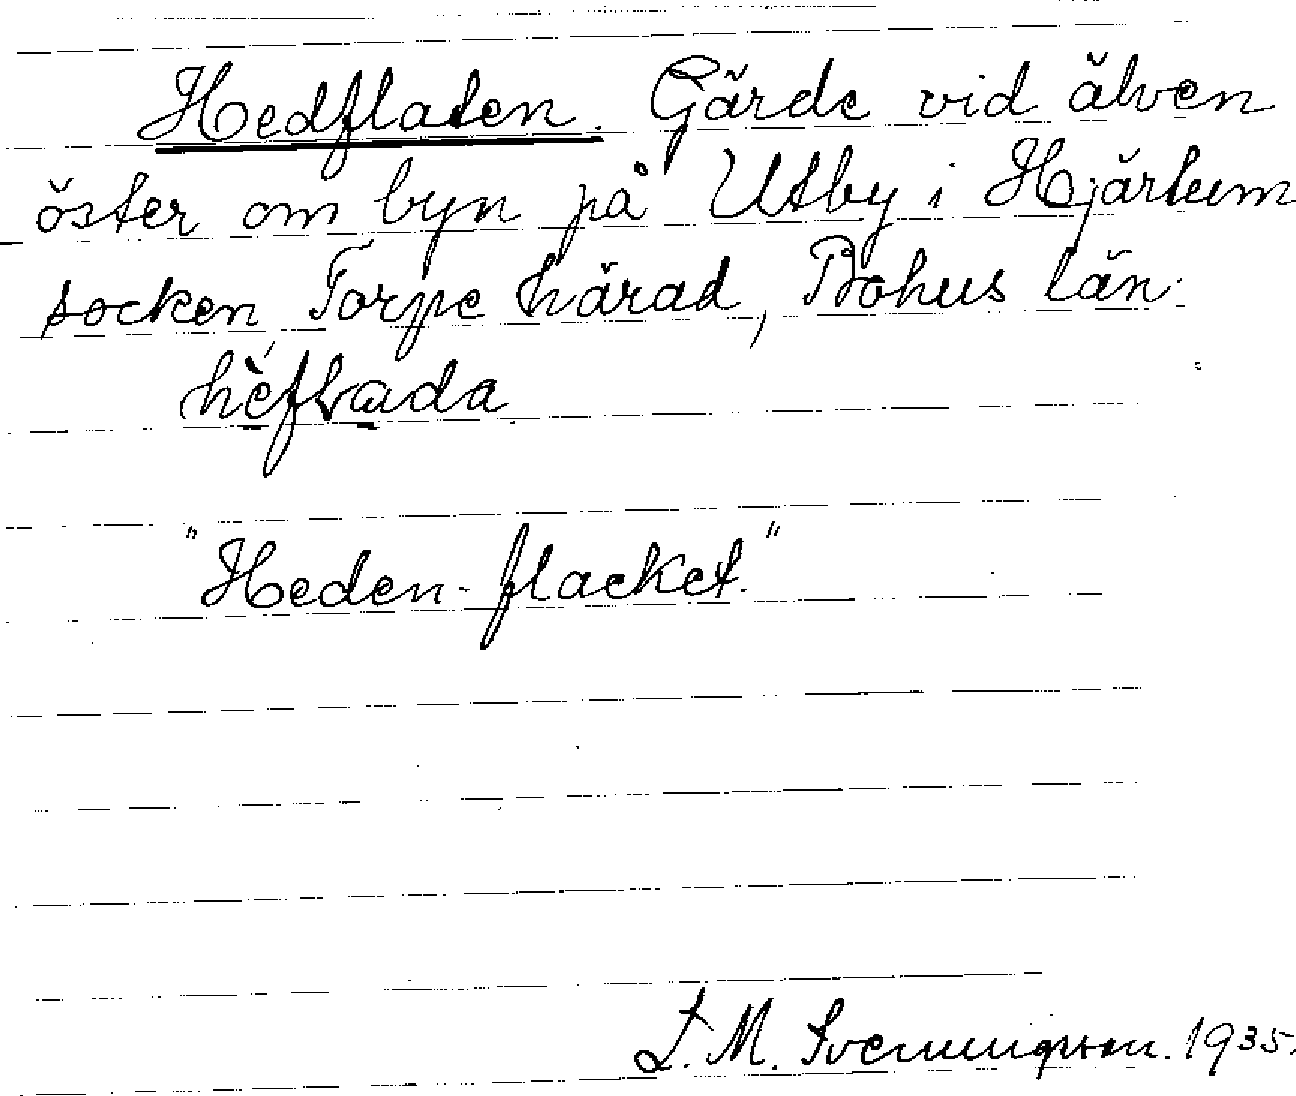 Hedflaten. Gärde vid älven
öster om byn på Utby i Hjärtum
socken, Torpe härad, Bohus län.
"Heden-flacket."
L. M. Svenungsson. 1935.